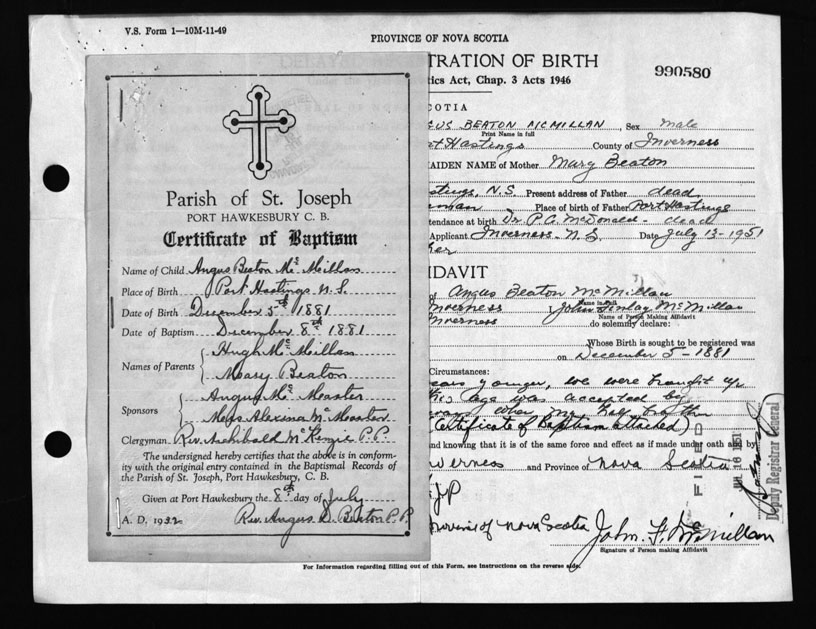 V.S. Form 1—10M-11-49
PROVINCE OF NOVA SCOTIA
TRATION OF BIRTH
990580
tics Act, Chap. 3 Acts 1946
SCOTIA
GUS BEATON MCMILLAN, Sex male
Print Name in full
rt Hastings County of Inverness
MAIDEN NAME of Mother Mary Beaton
stings, N.S Present address of Father dead
Place of birth of Father Port Hastings
tendance at birth Dr. P.A. McDonald - dead
Applicant Inverness N.S. Date July 13-1951
Parish of St. Joseph
PORT HAWKESBURY C. B.
Certificate of Baptism
Name of Child Angus Beaton Mc Millan
Place of Birth Port Hastings N.S.
Date of Birth December 5th 1881
Date of Baptism December 8th 1881
Names of Parents
Hugh Mc Millan
Mary Beaton
Sponsors
Angus Mc Master
Mrs Alexina Mc Master
Clergyman Rev. Archibald McKenzie P.P.
The undersigned hereby certifies that the above is in conform-
ity with the original entry contained in the Baptismal Records of
the Parish of St. Joseph, Port Hawkesbury, C.B.
Given at Port Hawkesbury the 8th day of July
A. D. 1932 Rev. Angus D. Beaton P.P.
FIDAVIT
Angus Beaton McMillan
Name in full
nverness John Finlay McMillan
Name of Person Making Affidavit
nverness do solemnly declare:
Whose Birth is sought to be registered was
on December 5-1881
Circumstances:
ears younger, we were brought up
his age was accepted by
when my half brother
(Certificate of Baptism attached)
and knowing that it is of the same force and effect as if made under oath
verness and Province of Nova Scotia
JP
Province of Nova Scotia
John F. McMillan
Signature of Person making Affidavit
FILED
16 1951
Deputy Registrar General
For Information regarding filling out of this Form, see Instructions on the reverse side.